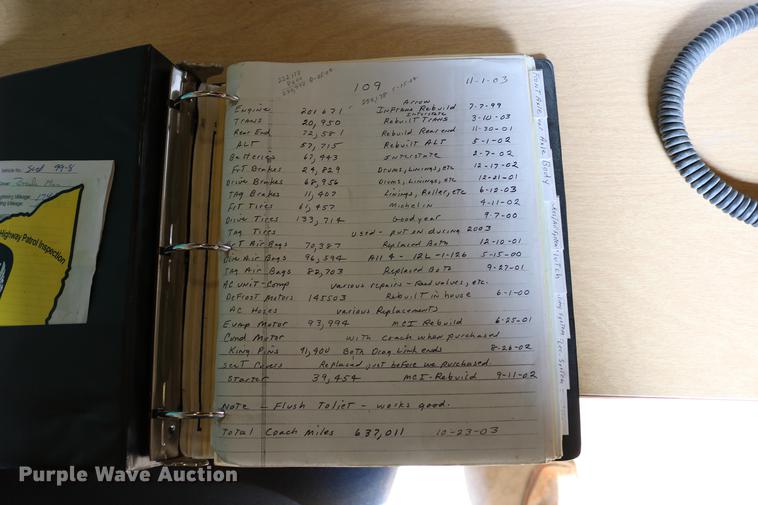 109
11-1-03
Arrow
Engine 201671 Inframe Rebuild 7-7-99
Interstate
Trans 20,950 Rebuilt Trans 3-10-03
Rear End 72,581 Rebuild Rear end 11-30-01
ALT 57,715 Rebuilt ALT 5-1-02
Batteries 67,943 Interstate 2-7-02
Frt Brakes 24,829 Drums, Linings, etc 12-17-02
Drive Brakes 68,956 Drums, Linings, etc 12-21-01
Tag Brakes 11,407 Linings, Roller, etc 6-12-03
Frt Tires 61,457 Michelin 4-11-02
Drive Tires 133,714 Goodyear 9-7-00
Tag Tires used - put on during 2003
Frt Air Bags 70,387 Replaced Both 12-10-01
Driv Air Bags 96,594 All 4 - 12L-1-126 5-15-00
Tag Air Bags 82,703 Replaced Both 9-27-01
AC unit-Comp various repairs - reed valves, etc.
Defrost Motors 145503 Rebuilt in house 6-1-00
AC Hoses various Replacements
Evap Motor 93,994 MCI Rebuild 6-25-01
Cond Motor with coach when purchased
King Pins 91,400 Both Drag Link ends 8-26-02
Seat Covers Replaced just before we purchased.
Starter 39,454 MCI-Rebuild 9-11-02
Note - Flush Toliet - works good.
Total Coach Miles 637,011 10-23-03
Highway Patrol Inspection
Body
Purple Wave Auction